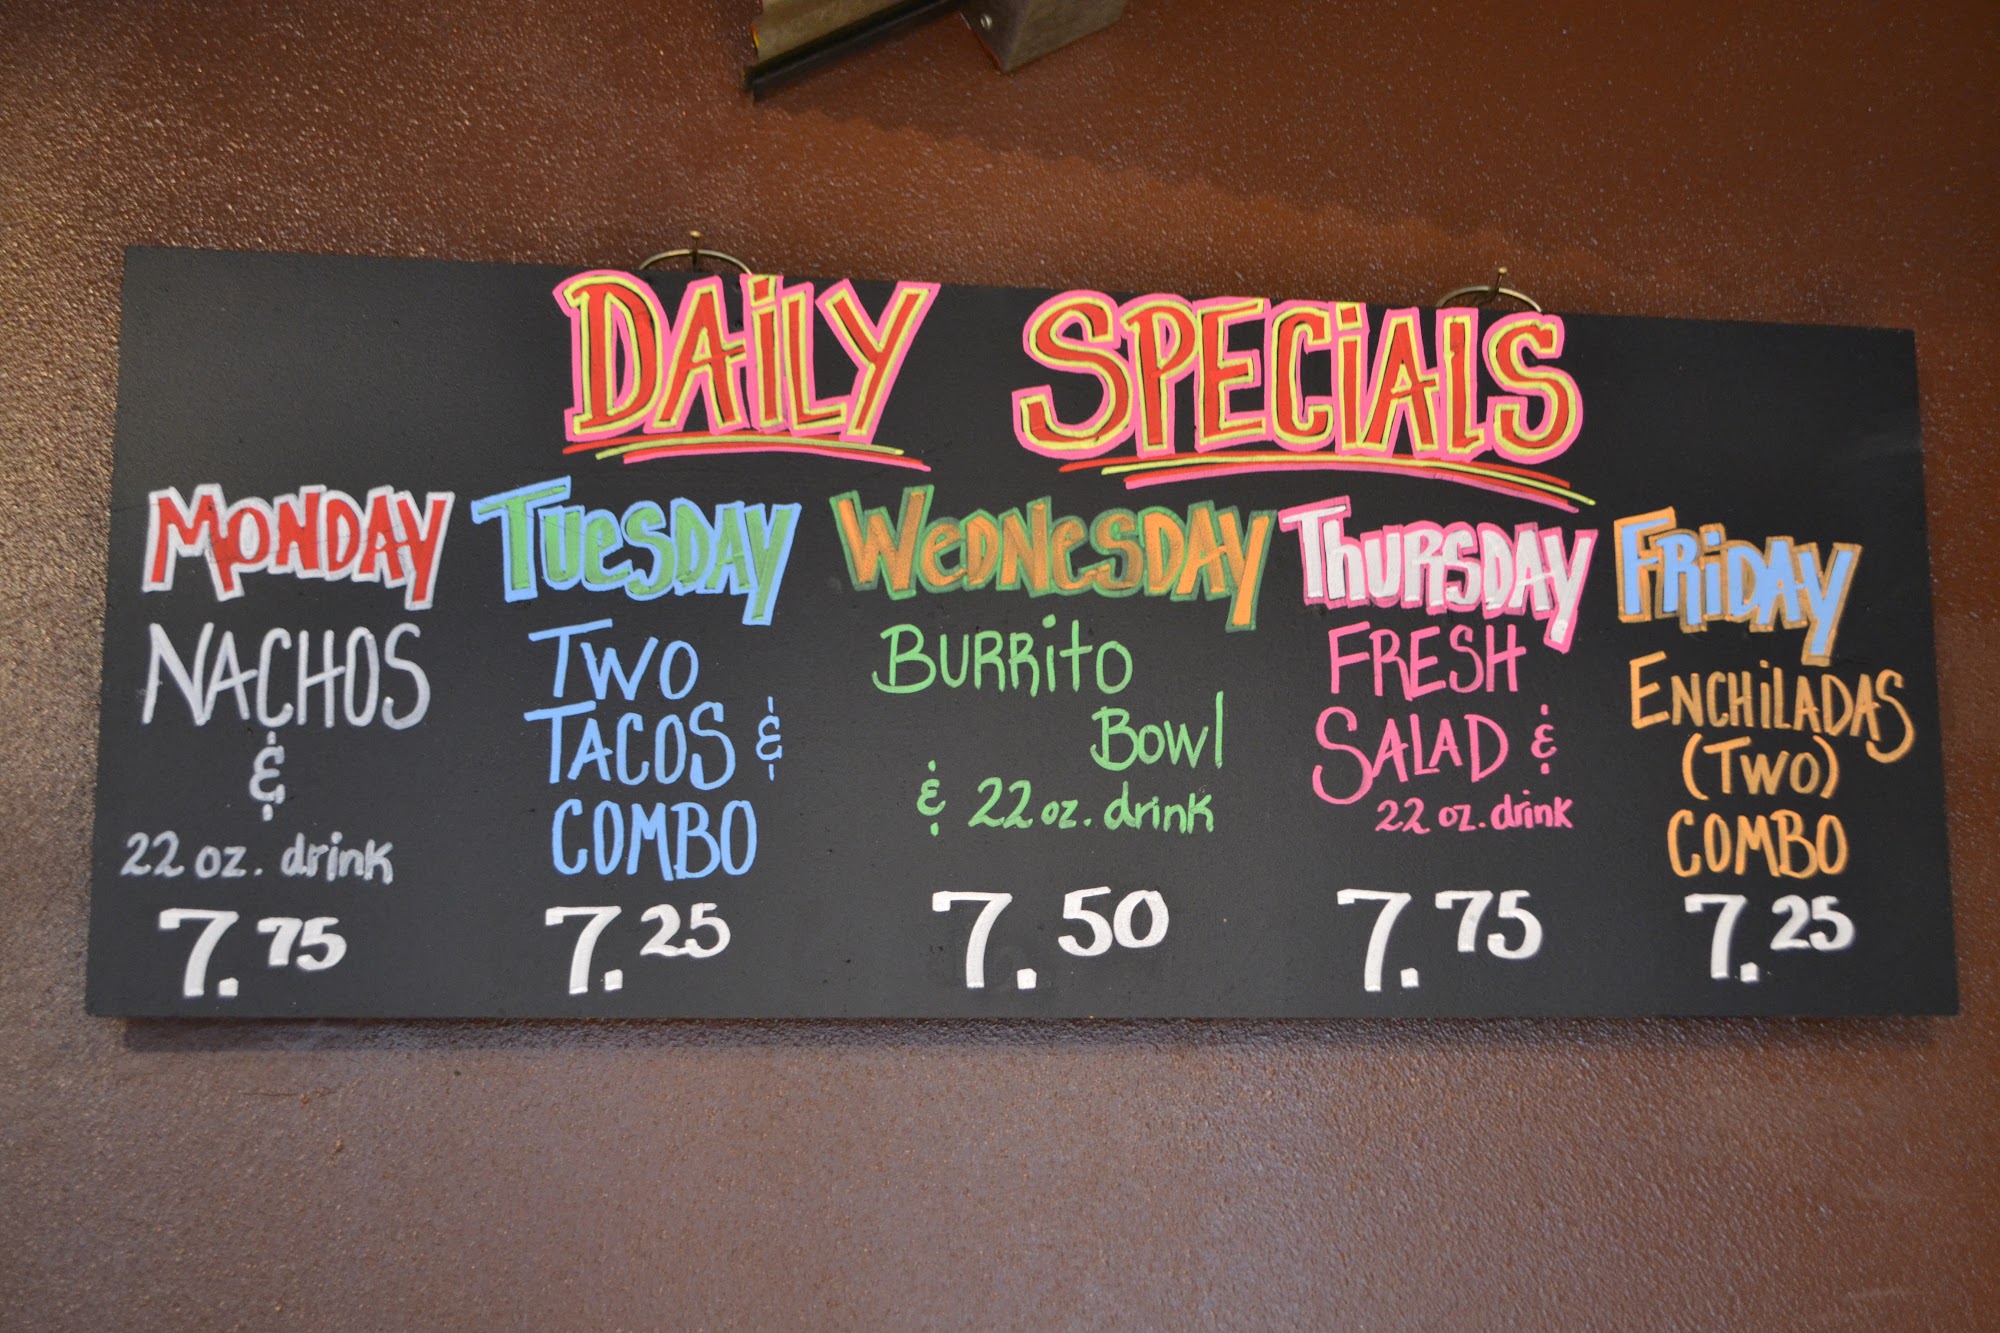 DAiLY SPECiALS
MONDAY
NACHOS
&
22 oz. drink
7.75
TUESDAY
TWO
TACOS &
COMBO
7.25
WEDNESDAY
BURRitO
BOWl
& 22 oz. drink
7.50
THURSDAY
FRESH
SALAD &
22 oz. drink
7.75
FRiDAY
ENCHiLADAS
(TWO)
COMBO
7.25